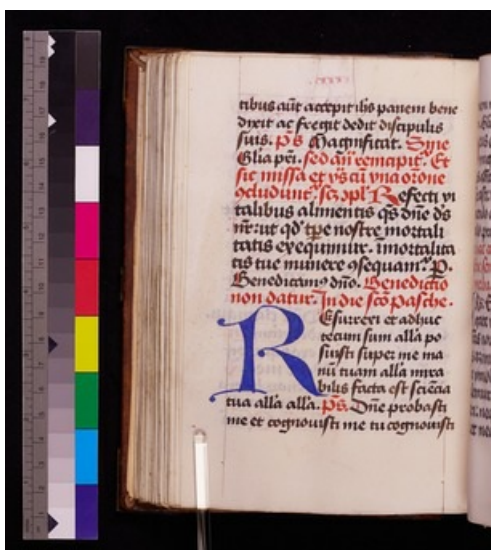 tibus aut̃ accepit ih̃s panem bene
dixit ac fregit dedit discipulis
suis. p̃s Magnificat. Sine
Glia pr̃i. sed añ reincipit. Et
sic missa et ṽs cũ vna or̃one
ɔcludunt᷑. Refecti vi
talibus alimentis q̃s dñe d̃s
nr̃: ut qd̃ tp̃e nostre mortali
tatis exequimur. ĩmortalita
tis tue munere ɔsequam᷑. P.
Benedicamꝰ dño. Benedictio
non datur. In die scõ pasche.
Resurrexi et adhuc
tecum sum all̃a po
suisti super me ma
nũ tuam all̃a mira
bilis facta est sciẽcia
tua all̃a all̃a. p̃s. Dñe probasti
me et cognouisti me tu cognouisti